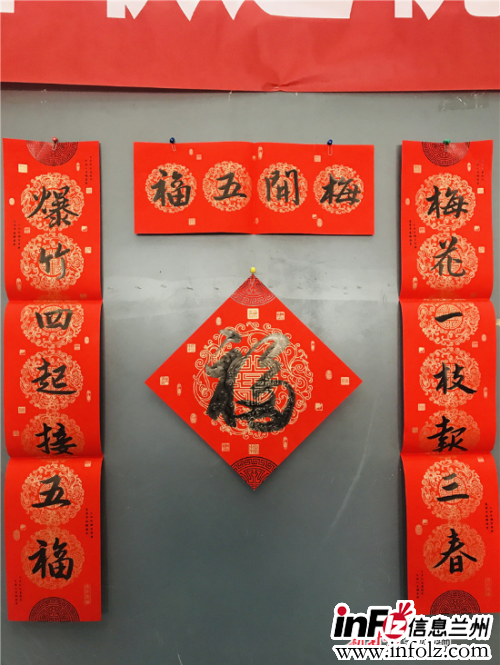 梅開五福
梅花一枝三春
爆竹四起接五福
福
信息兰州
www.infolz.com